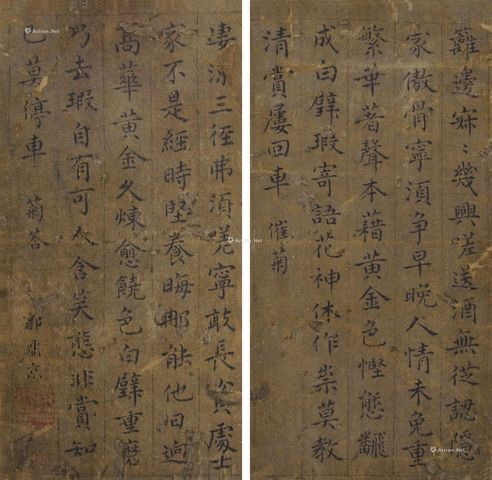 籬邊寂〻幾興嗟送酒無從認隱
家傲骨寧須爭早晚人情未免重
繁華著聲本藉黃金色慳態翻
成白璧瑕寄語花神休作祟莫教
清賞屢回車 催菊
淒涼三徑弗須嗟寧敢長貧處士
家不是經時堅養晦那能他日逈
高華黃金久煉愈饒色白璧重磨
巧去瑕自有可人含笑態非賞知
己莫停車 菊答 郭鼎京
Artron.Net
Artron.Net
Artron.Net
Artron.Net